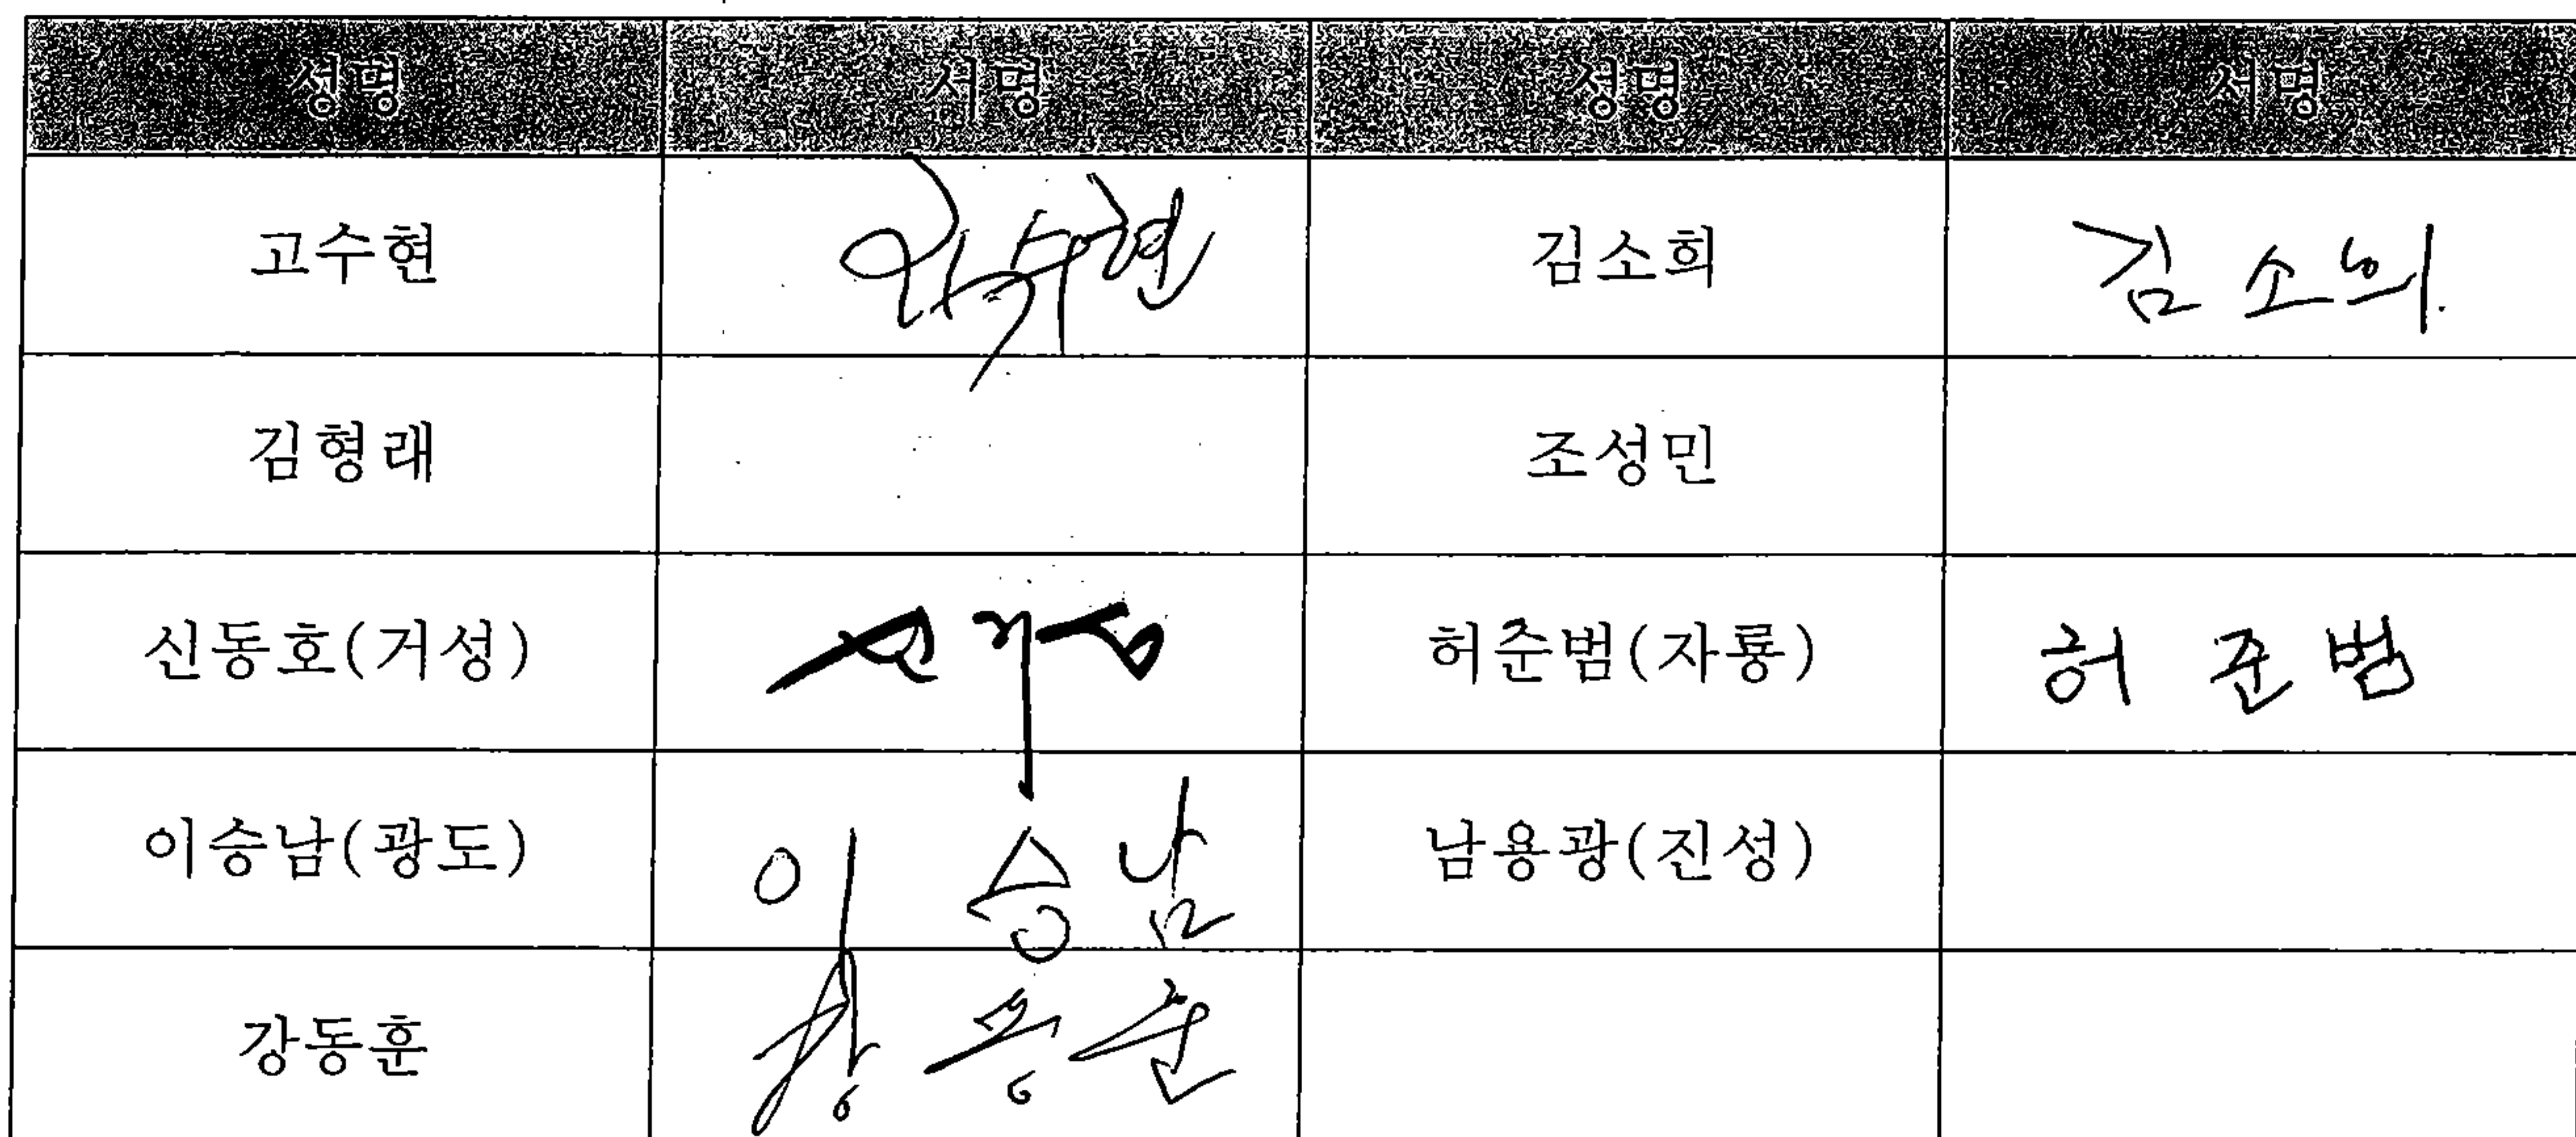 성명 서명 성명 서명
고수현 김소희 김소희
김형래 조성민
신동호(거성) 신거성 허준범(자룡) 허준범
이승남(광도) 이승남 남용광(진성)
강동훈 강동훈